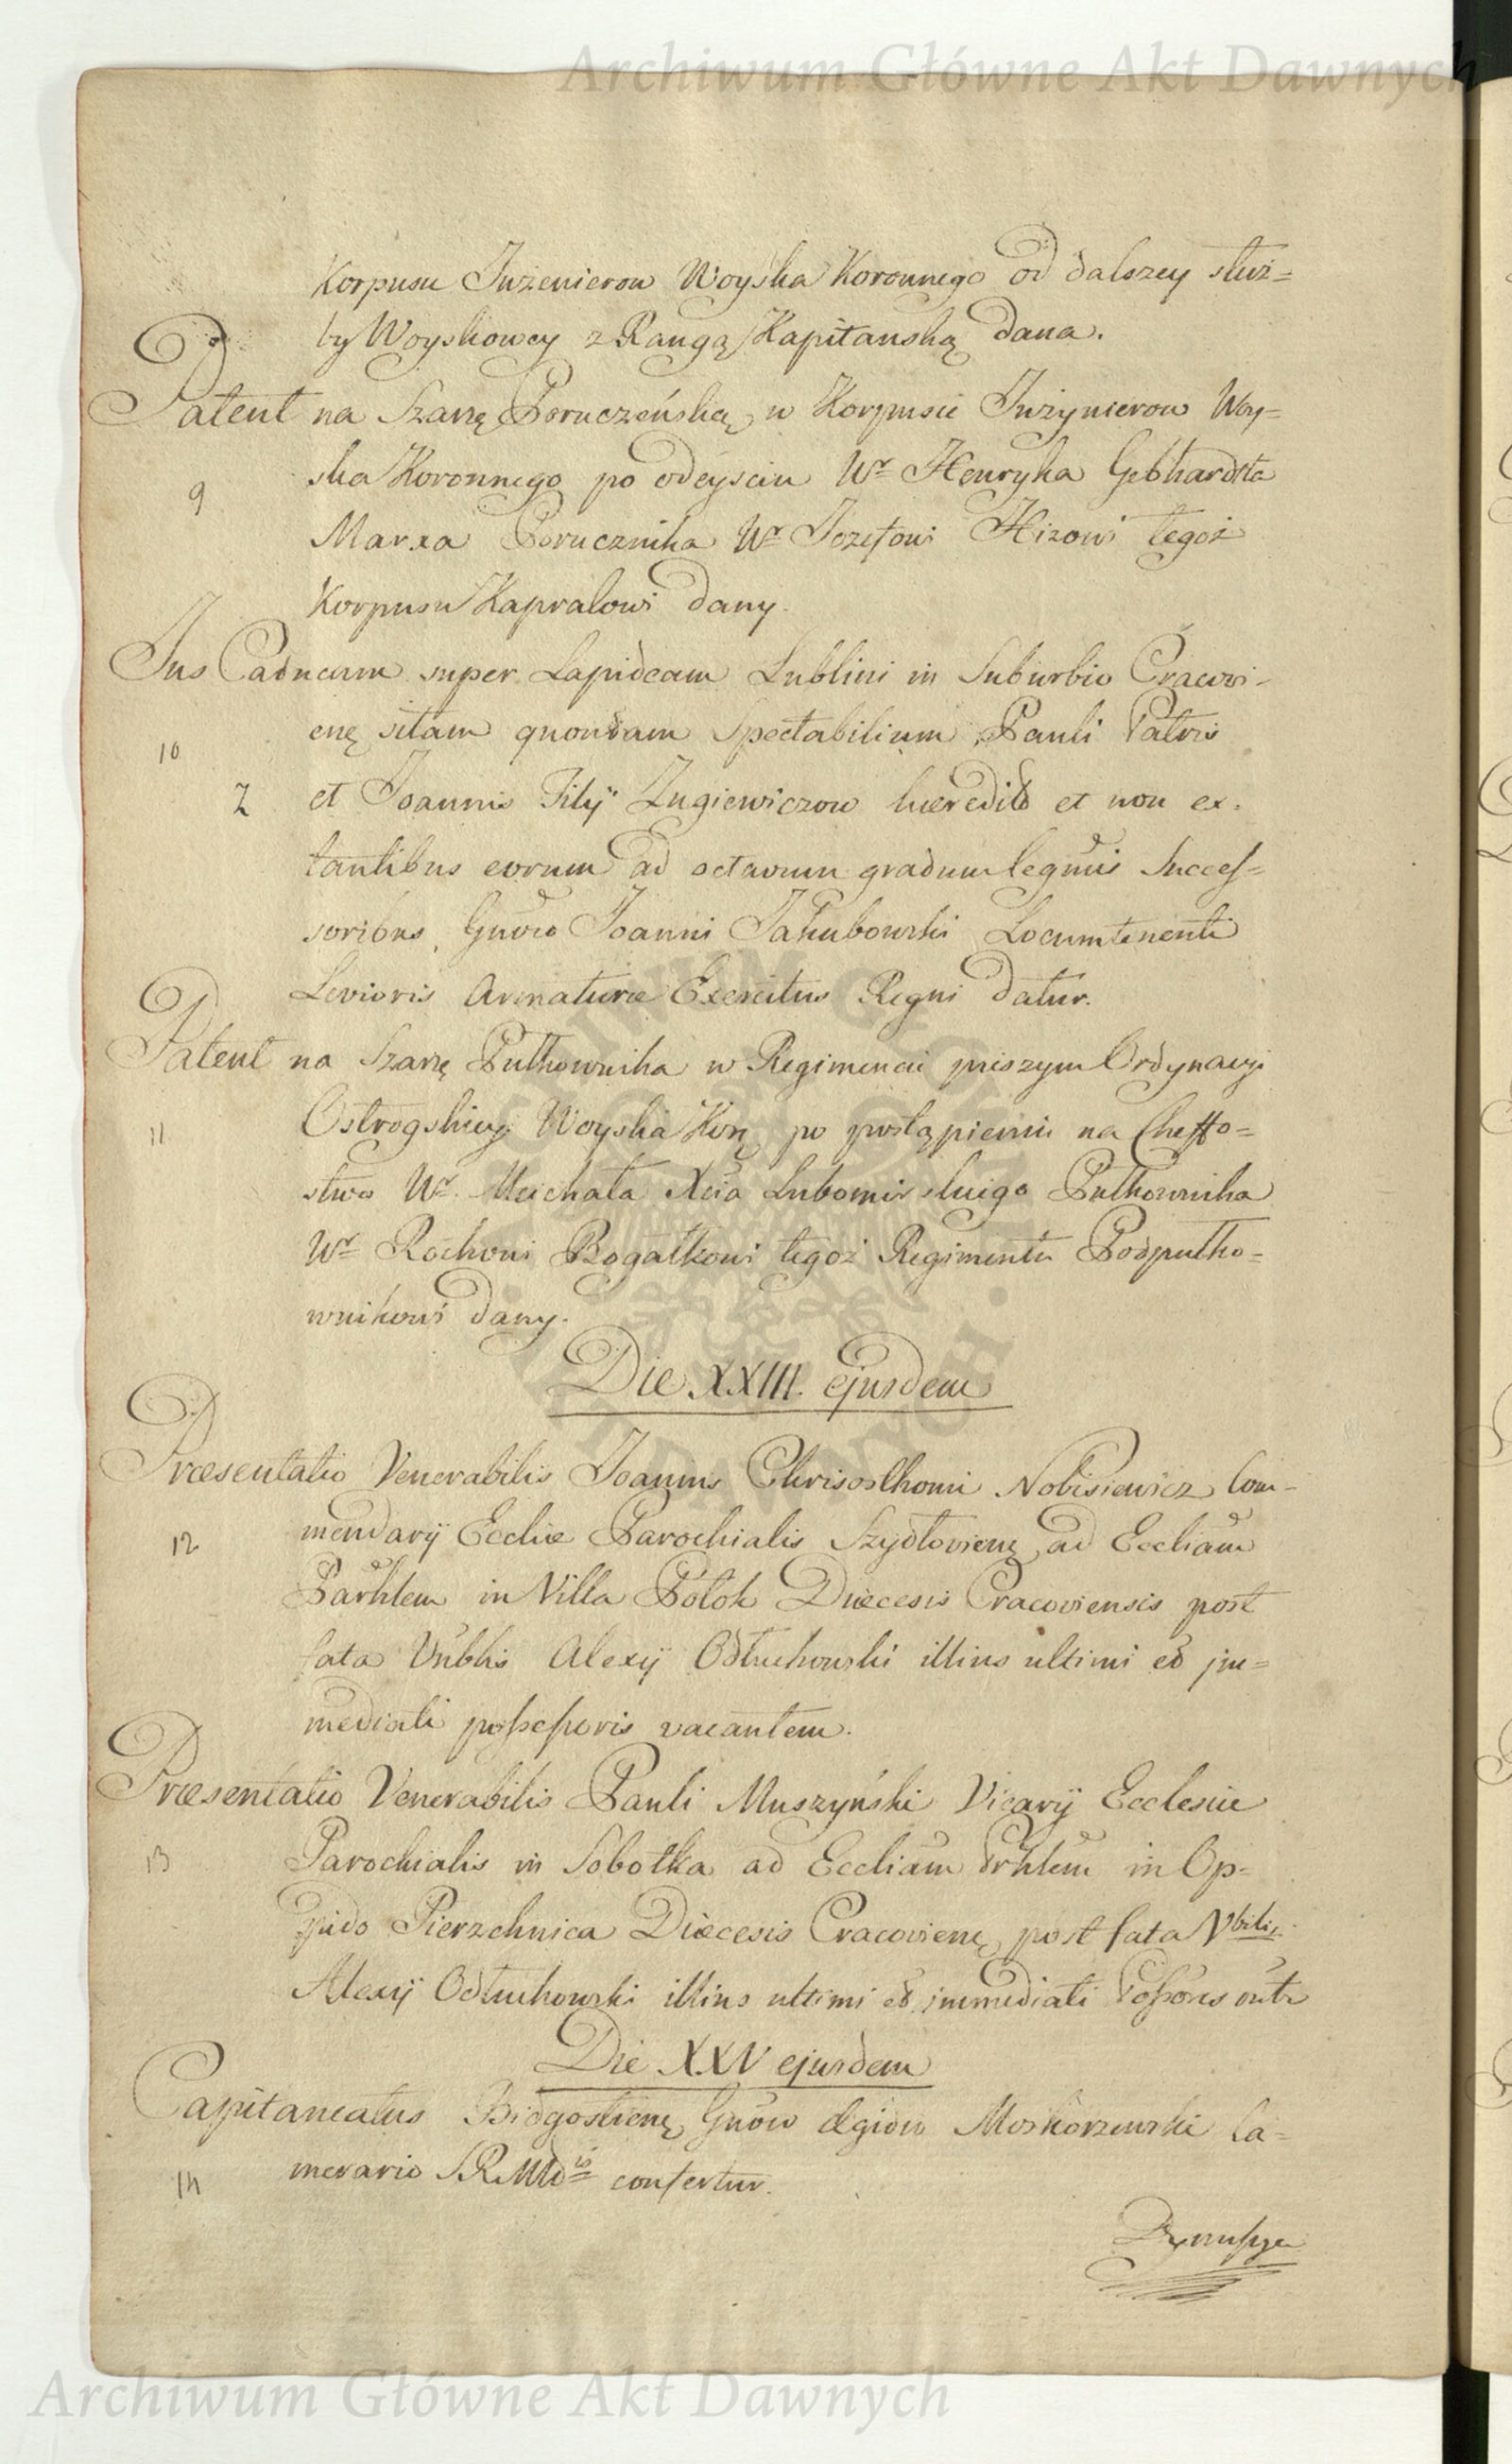 Archiwum Główne Akt Dawnych
Korpusu Inzenierow Woyska Koronnego od dalszey służ=
by Woyskowey z Rangą Kapitanską dana.
Patent na Szarżę Poruczeńską w Korpusie Inżynierow Woy=
ska Koronnego po odeyściu Wo Henryka Gebhardta
9
Marxa Porucznika Wo Jozefowi Hizowi tegoż
Korpusu Kapralowi dany.
Jus Caducum super Lapideam Lublini in Suburbio Cracovi-
enę sitam quondam Spectabilium Pauli Patris
10
Z et Joannis Filij Zugiewiczow hæredib et non ex=
tantibus eorum ad octavum gradum legmis Succes=
soribus, Gnroso Joanni Jakubowski Locumtenenti
Levioris Armaturæ Exercitus Regni datur.
Patent na Szarżę Pułkownika w Regimencie pieszym Ordynacyi
11
Ostrogskiey Woyska Korę po postąpieniu na Cheffo=
stwo Wo Michała Xcia Lubomirskiego Pułkownika
Wo Rochowi Bogatkowi tegoż Regimentu Podpułko=
wnikowi dany.
Die XXIII. ejusdem
Præsentatio Venerabilis Joannis Chrisosthomi Nobisiewicz Com-
12
mendarij Eccliæ Parochialis Szydłovienę ad Eccliam
Parhlem in Villa Potok Diæcesis Cracoviensis post
fata Vnblis Alexij Odłuchowski illius ultimi et im=
mediati possessoris vacantem.
Præsentatio Venerabilis Pauli Muszyński Vicarij Ecclesiæ
13
Parochialis in Sobotka ad Eccliam Prhlem in Op=
pido Pierzchnica Diæcesis Cracovienę post fata Vbilis
Alexij Odłuchowski illius ultimi et immediati Possoris
Die XXV ejusdem
Capitaneatus Bidgostienę Gnoso Moskorzewski Ca=
14
merario S.R.Mtis confertur.
Archiwum Główne Akt Dawnych